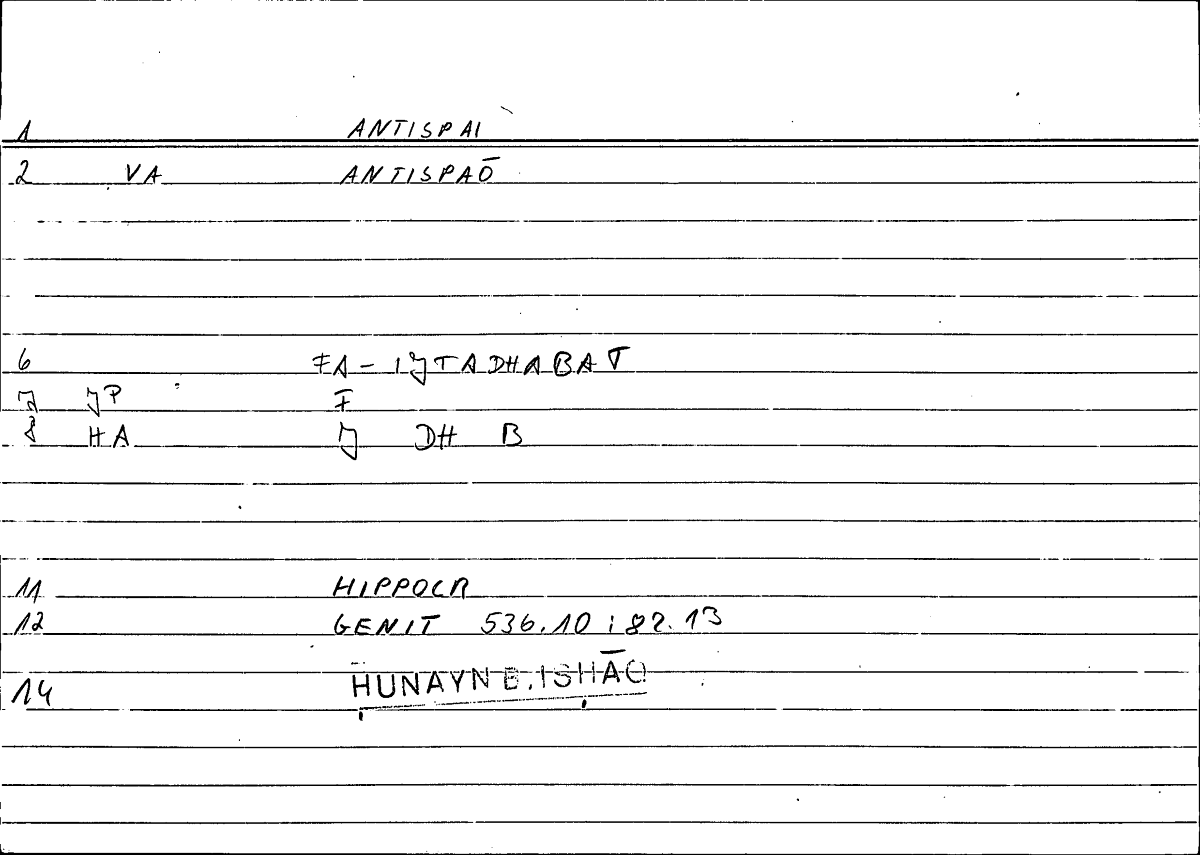 1 ANTISPAI
2 VA ANTISPAŌ
6 FA-IJTADHABAT
7 JP F
8 HA J DH B
11 HIPPOCR
12 GENIT 536.10 ; 82.13
14 ḤUNAYN B. ISḤĀQ